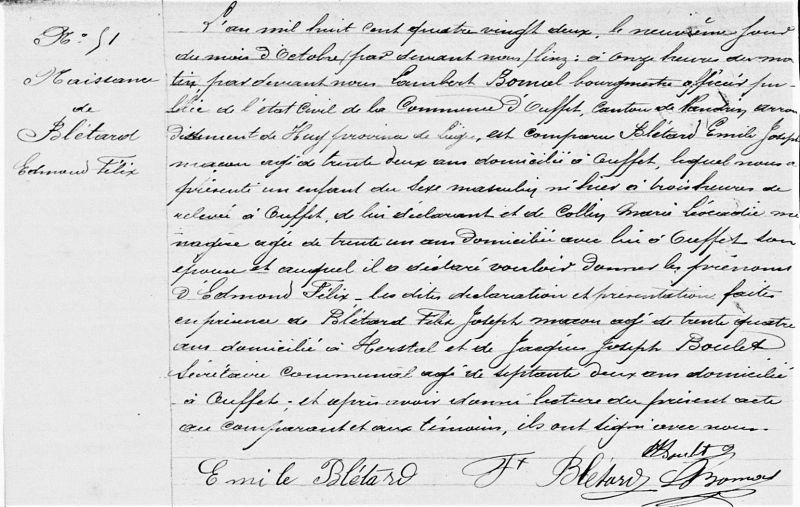 N° 51
Naissance
de
Blétard
Edmond Félix
L'an mil huit cent quatre vingt deux, le neuvième jour
du mois d'Octobre (par devant nous) à onze heures du ma-
tin, par devant nous Lambert bourgmestre officier pu-
blic de l'état civil de la Commune d'Ouffet, canton de Nandrin, arron
dissement de Huy province de Liège, est comparu Blétard Emile Joseph
maçon agé de trente deux ans domicilié à Ouffet, lequel nous a
présenté un enfant du sexe masculin né hier à trois heures de
relevée à Ouffet, de lui déclarant et de Collin Marie Léocadie mé
nagère agée de trente un ans domiciliée avec lui à Ouffet son
epouse et auquel il a déclaré vouloir donner les prénoms
d'Edmond Félix - les dites déclaration et présentation faites
en présence de Blétard Felix Joseph maçon agé de trente quatre
ans domicilié à Herstal et de Jacques Joseph Boulet
Sécrétaire communal agé de septante deux ans domicilié
à Ouffet ; et après avoir donné lecture du présent acte
au comparant et aux témoins, ils ont signé avec nous.
Boulet
Emile Blétard Fx Blétard